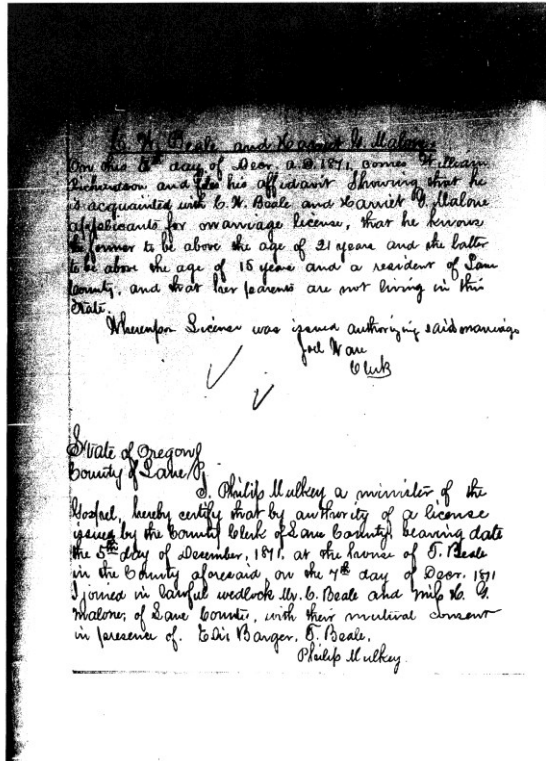 C. W. Beale and Harriet G. Malone.
On this 5th day of Decr. A.D. 1871, comes William
Richardson and files his affidavit showing that he
is acquainted with C. W. Beale and Harriet G. Malone
applicants for marriage license, that he knows
the former to be above the age of 21 years and the latter
to be above the age of 15 years and a resident of Lane
County, and that her parents are not living in this
State.
Whereupon License was issued authorizing said marriage
Joel Ware
Clerk
State of Oregon
County of Lane
I, Philip Mulkey a minister of the
Gospel, hereby certify that by authority of a license
issued by the County Clerk of Lane County bearing date
the 5th day of December, 1871, at the house of T. Beale
in the County aforesaid, on the 7th day of Decr. 1871
I joined in lawful wedlock Mr. C. Beale and Miss H. G.
Malone, of Lane County, with their mutual consent
in presence of. Elis Barger, T. Beale,
Philip Mulkey.